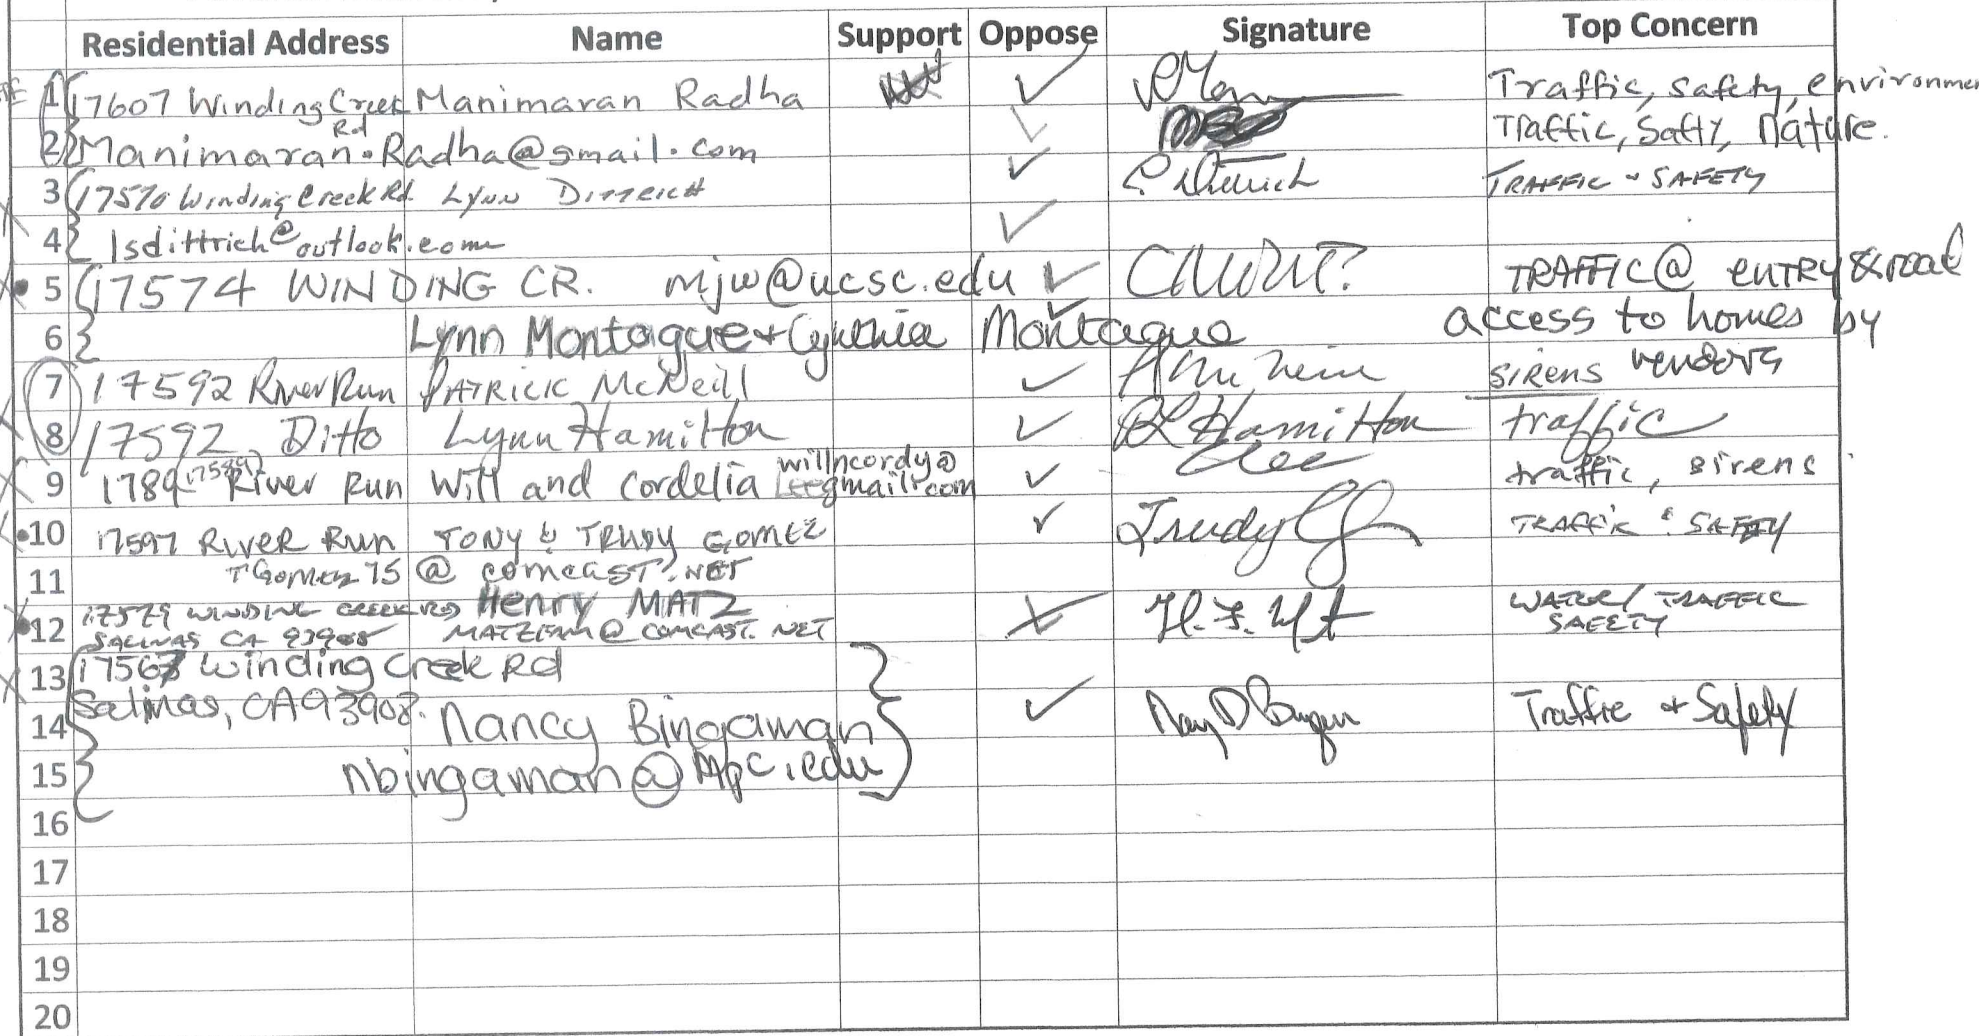 Residential Address Name Support Oppose Signature Top Concern
1 17607 Winding Creek Rd Manimaran Radha ✓ Traffic, safety, environmen
2 Manimaran.Radha@gmail.com ✓ Traffic, Safty, Nature.
3 17570 Winding Creek Rd. Lynn Dittrich ✓ L Dittrich TRAFFIC - SAFETY
4 lsdittrich@outlook.com ✓
5 17574 WINDING CR. mjw@ucsc.edu ✓ TRAFFIC @ ENTRY & road
6 Lynn Montague + Cynthia Montague ✓ access to homes by
7 17592 River Run PATRICK McNeill ✓ sirens vendors
8 17592 Ditto Lynn Hamilton ✓ Hamilton traffic
9 1789 17589 River Run Will and Cordelia Lee willncordy@gmail.com ✓ Lee traffic, sirens
10 17597 River Run TONY & TRUDY GOMEZ ✓ Trudy TRAFFIC & SAFETY
11 TGOMEZ75@COMCAST.NET
12 17579 WINDING CREEK RD Henry MATZ WATER/TRAFFIC
SALINAS CA 93908 MATZFAM@COMCAST.NET SAFETY
13 17567 Winding Creek Rd
14 Salinas, CA 93908. Nancy Bingaman ✓ Traffic + Safety
15 nbingaman@mpc.edu
16
17
18
19
20